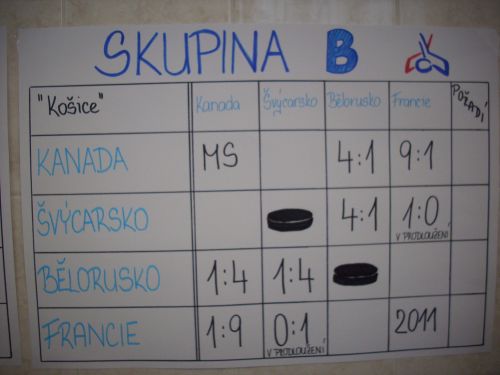 SKUPINA B
"Košice" Kanada Švýcarsko Bělorusko Francie POŘADÍ
KANADA MS 4:1 9:1
ŠVÝCARSKO 4:1 1:0
V PRODLOUŽENÍ
BĚLORUSKO 1:4 1:4
FRANCIE 1:9 0:1 2011
V PRODLOUŽENÍ